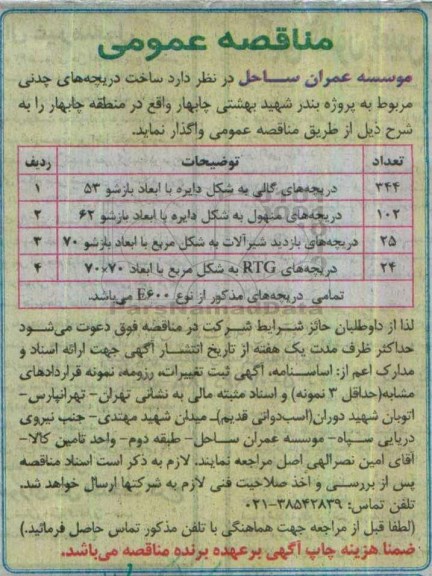 مناقصه عمومی
موسسه عمران ساحل در نظر دارد ساخت دریچه‌های چدنی
مربوط به پروژه بندر شهید بهشتی چابهار واقع در منطقه چابهار را به
شرح ذیل از طریق مناقصه عمومی واگذار نماید.
ردیف توضیحات تعداد
۱ دریچه‌های گالی به شکل دایره با ابعاد بازشو ۵۳ ۳۴۴
۲ دریچه‌های منهول به شکل دایره با ابعاد بازشو ۶۲ ۱۰۲
۳ دریچه‌های بازدید شیرآلات به شکل مربع با ابعاد بازشو ۷۰ ۲۵
۴ دریچه‌های RTG به شکل مربع با ابعاد ۷۰×۷۰ ۲۴
تمامی دریچه‌های مذکور از نوع E۶۰۰ می‌باشد.
لذا از داوطلبان حائز شرایط شرکت در مناقصه فوق دعوت می‌شود
حداکثر ظرف مدت یک هفته از تاریخ انتشار آگهی جهت ارائه اسناد و
مدارک اعم از: اساسنامه، آگهی ثبت تغییرات، رزومه، نمونه قراردادهای
مشابه(حداقل ۳ نمونه) و اسناد مثبته مالی به نشانی تهران- تهرانپارس-
اتوبان شهید دوران(اسب‌دوانی قدیم)ـ میدان شهید مهتدی- جنب نیروی
دریایی سپاه- موسسه عمران ساحل- طبقه دوم- واحد تامین کالا-
آقای امین نصرالهی اصل مراجعه نمایند. لازم به ذکر است اسناد مناقصه
پس از بررسی و اخذ صلاحیت فنی لازم به شرکتها ارسال خواهد شد.
تلفن تماس: ۳۸۵۴۲۸۳۹-۰۲۱
(لطفا قبل از مراجعه جهت هماهنگی با تلفن مذکور تماس حاصل فرمائید.)
ضمنا هزینه چاپ آگهی برعهده برنده مناقصه می‌باشد.
ParsNamadData